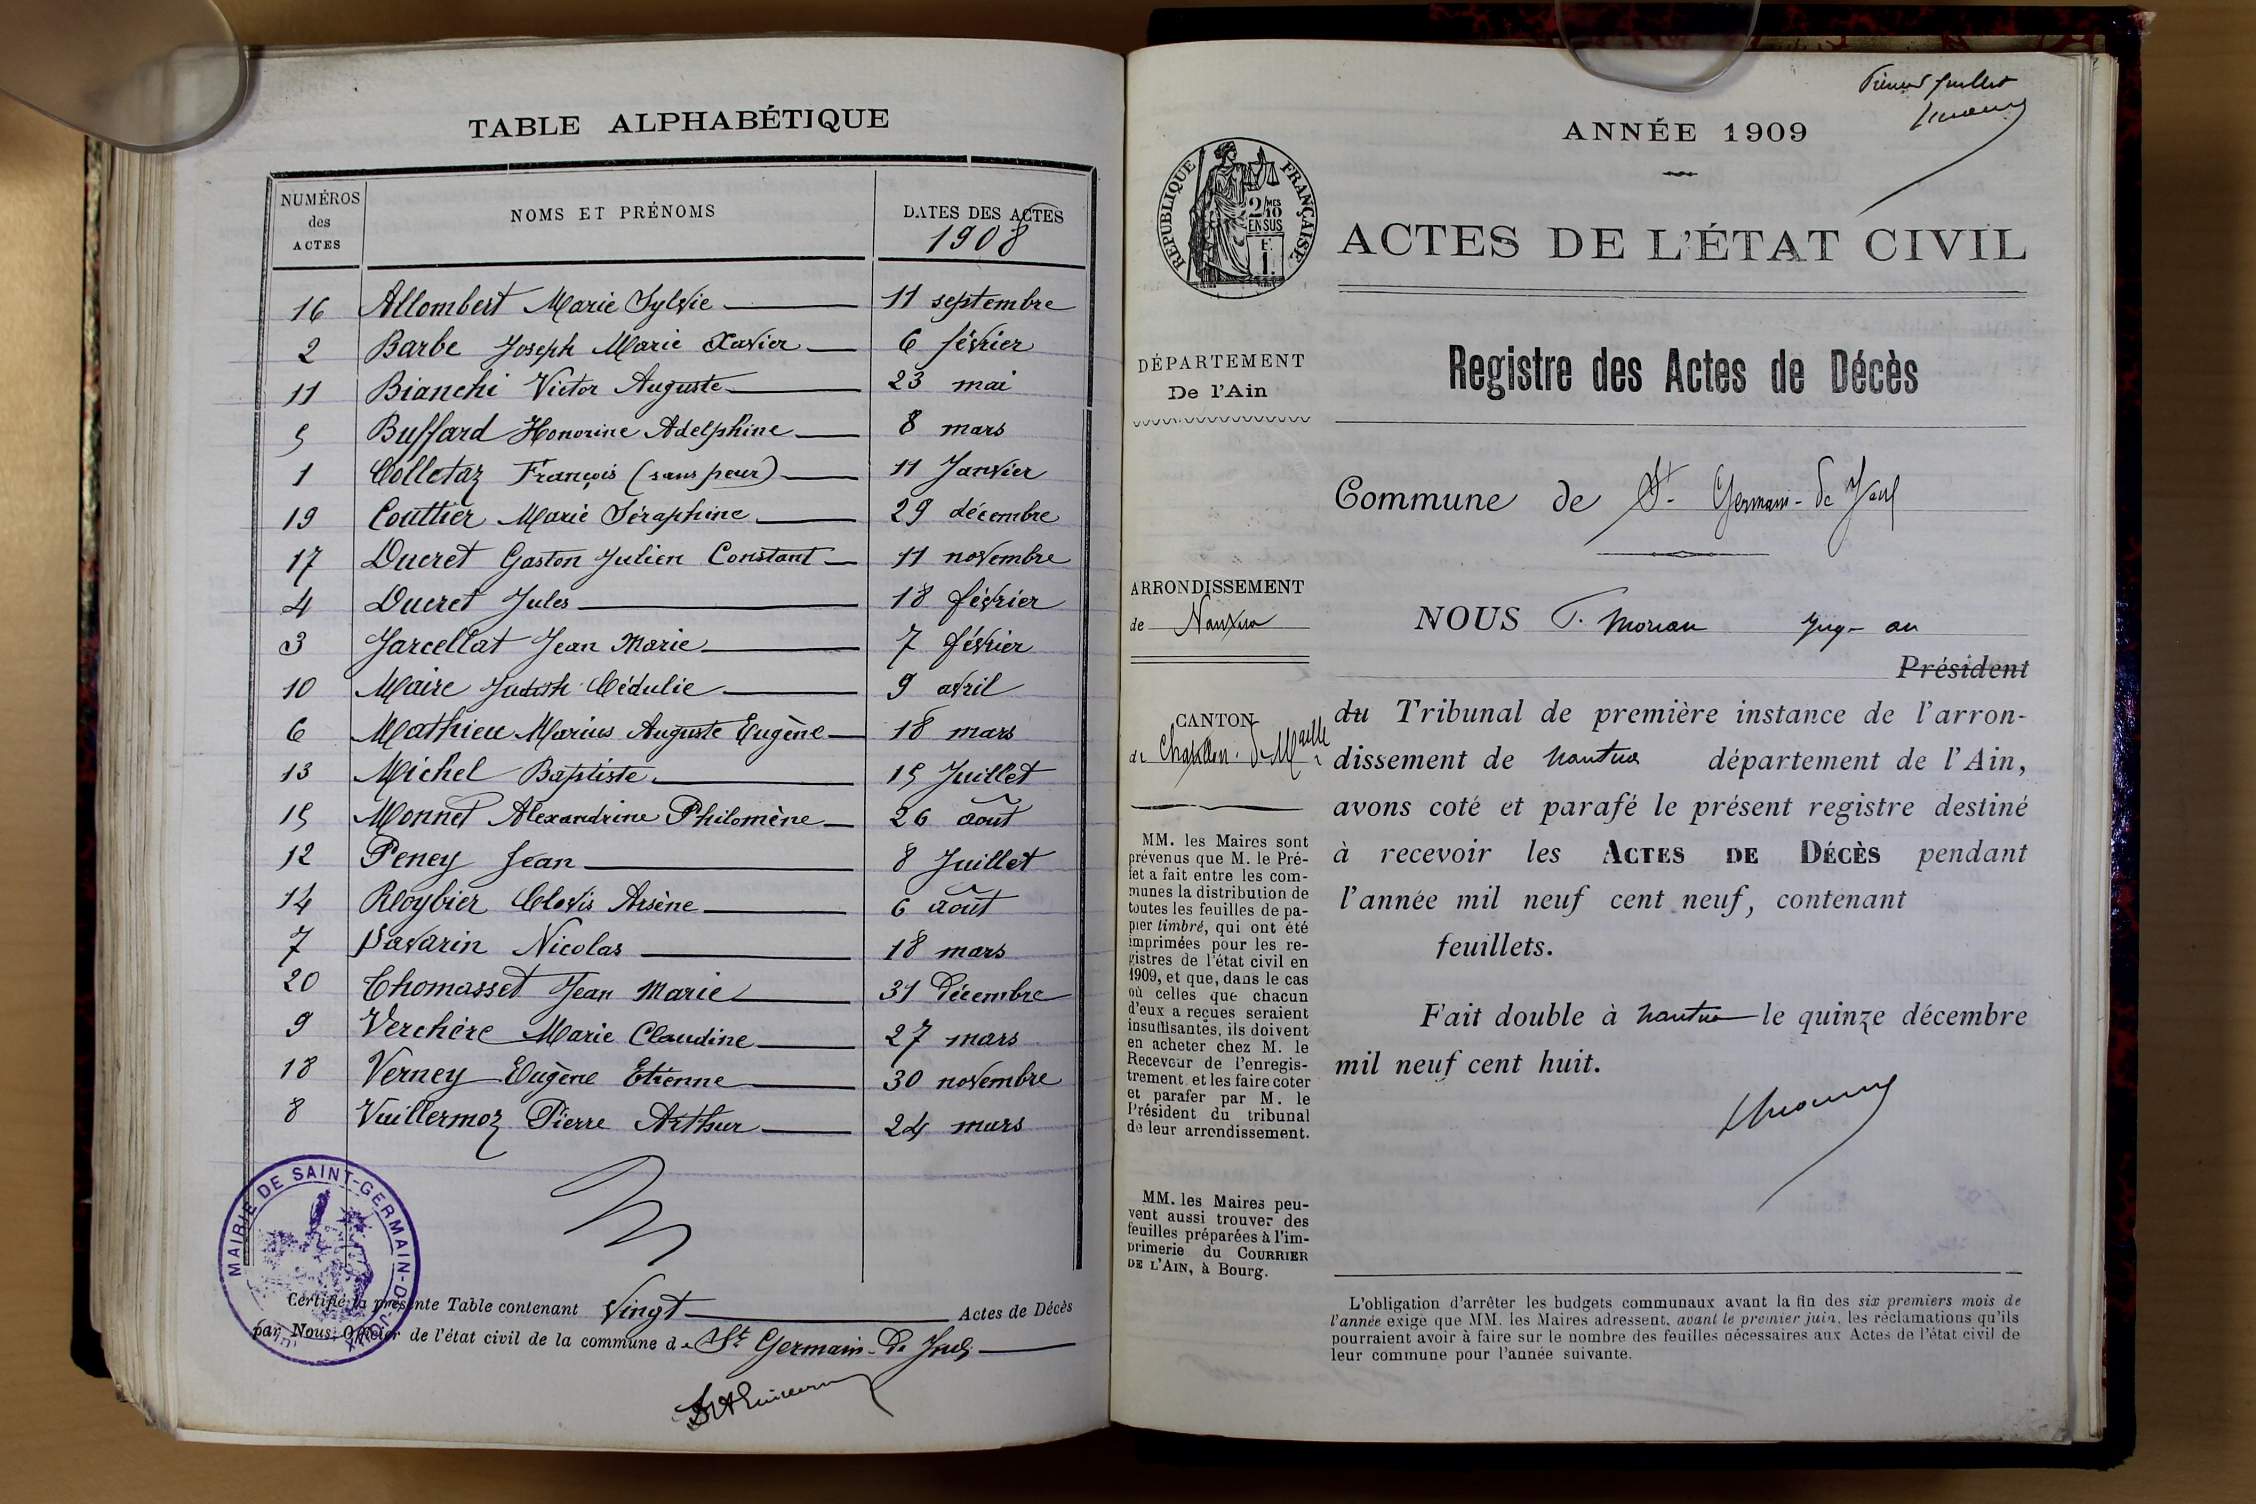 TABLE ALPHABÉTIQUE
NUMÉROS des ACTES
NOMS ET PRÉNOMS
DATES DES ACTES
1908
16 Allombert Marie Sylvie 11 septembre
2 Barbe Joseph Marie Xavier 6 février
11 Bianchi Victor Auguste 23 mai
5 Buffard Honorine Adelphine 8 mars
1 Colletaz François (sans peur) 11 Janvier
19 Couttier Marie Séraphine 29 décembre
17 Ducret Gaston Julien Constant 11 novembre
4 Ducret Jules 18 février
3 Jarcellat Jean Marie 7 février
10 Maire Judith Cédulie 9 avril
6 Mathieu Marius Auguste Eugène 18 mars
13 Michel Baptiste 15 Juillet
15 Monnet Alexandrine Philomène 26 août
12 Peney Jean 8 Juillet
14 Roybier Clovis Arsène 6 août
7 Savarin Nicolas 18 mars
20 Thomasset Jean Marie 31 Décembre
9 Verchère Marie Claudine 27 mars
18 Verney Eugène Etienne 30 novembre
8 Vuillermoz Pierre Arthur 24 mars
MAIRIE DE SAINT-GERMAIN-DE-JOUX
Certifié la présente Table contenant Vingt Actes de Décès
par Nous, Officier de l'état civil de la commune de St Germain-De Joux
ANNÉE 1909
RÉPUBLIQUE FRANÇAISE
2/10 MES
EN SUS
F.
1.
ACTES DE L'ÉTAT CIVIL
DÉPARTEMENT
De l'Ain
Registre des Actes de Décès
Commune de St-Germain-de Joux
ARRONDISSEMENT
de Nantua
CANTON
de Chatillon-de-Michaille
MM. les Maires sont
prévenus que M. le Pré-
fet a fait entre les com-
munes la distribution de
toutes les feuilles de pa-
pier timbré, qui ont été
imprimées pour les re-
gistres de l'état civil en
1909, et que, dans le cas
où celles que chacun
d'eux a reçues seraient
insuffisantes, ils doivent
en acheter chez M. le
Receveur de l'enregis-
trement et les faire coter
et parafer par M. le
Président du tribunal
de leur arrondissement.
MM. les Maires peu-
vent aussi trouver des
feuilles préparées à l'im-
primerie du COURRIER
DE L'AIN, à Bourg.
NOUS juge au
Président
du Tribunal de première instance de l'arron-
dissement de Nantua département de l'Ain,
avons coté et parafé le présent registre destiné
à recevoir les ACTES DE DÉCÈS pendant
l'année mil neuf cent neuf, contenant
feuillets.
Fait double à Nantua le quinze décembre
mil neuf cent huit.
L'obligation d'arrêter les budgets communaux avant la fin des six premiers mois de
l'année exige que MM. les Maires adressent, avant le premier juin, les réclamations qu'ils
pourraient avoir à faire sur le nombre des feuilles nécessaires aux Actes de l'état civil de
leur commune pour l'année suivante.